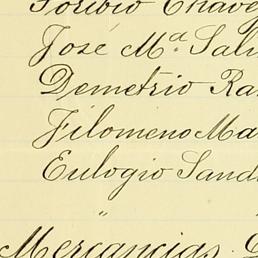 Toribio Chave
José Mª. Sal
Demetrio Ra
Filomeno Ma
Eulogio Sand
" "
Mercancias.